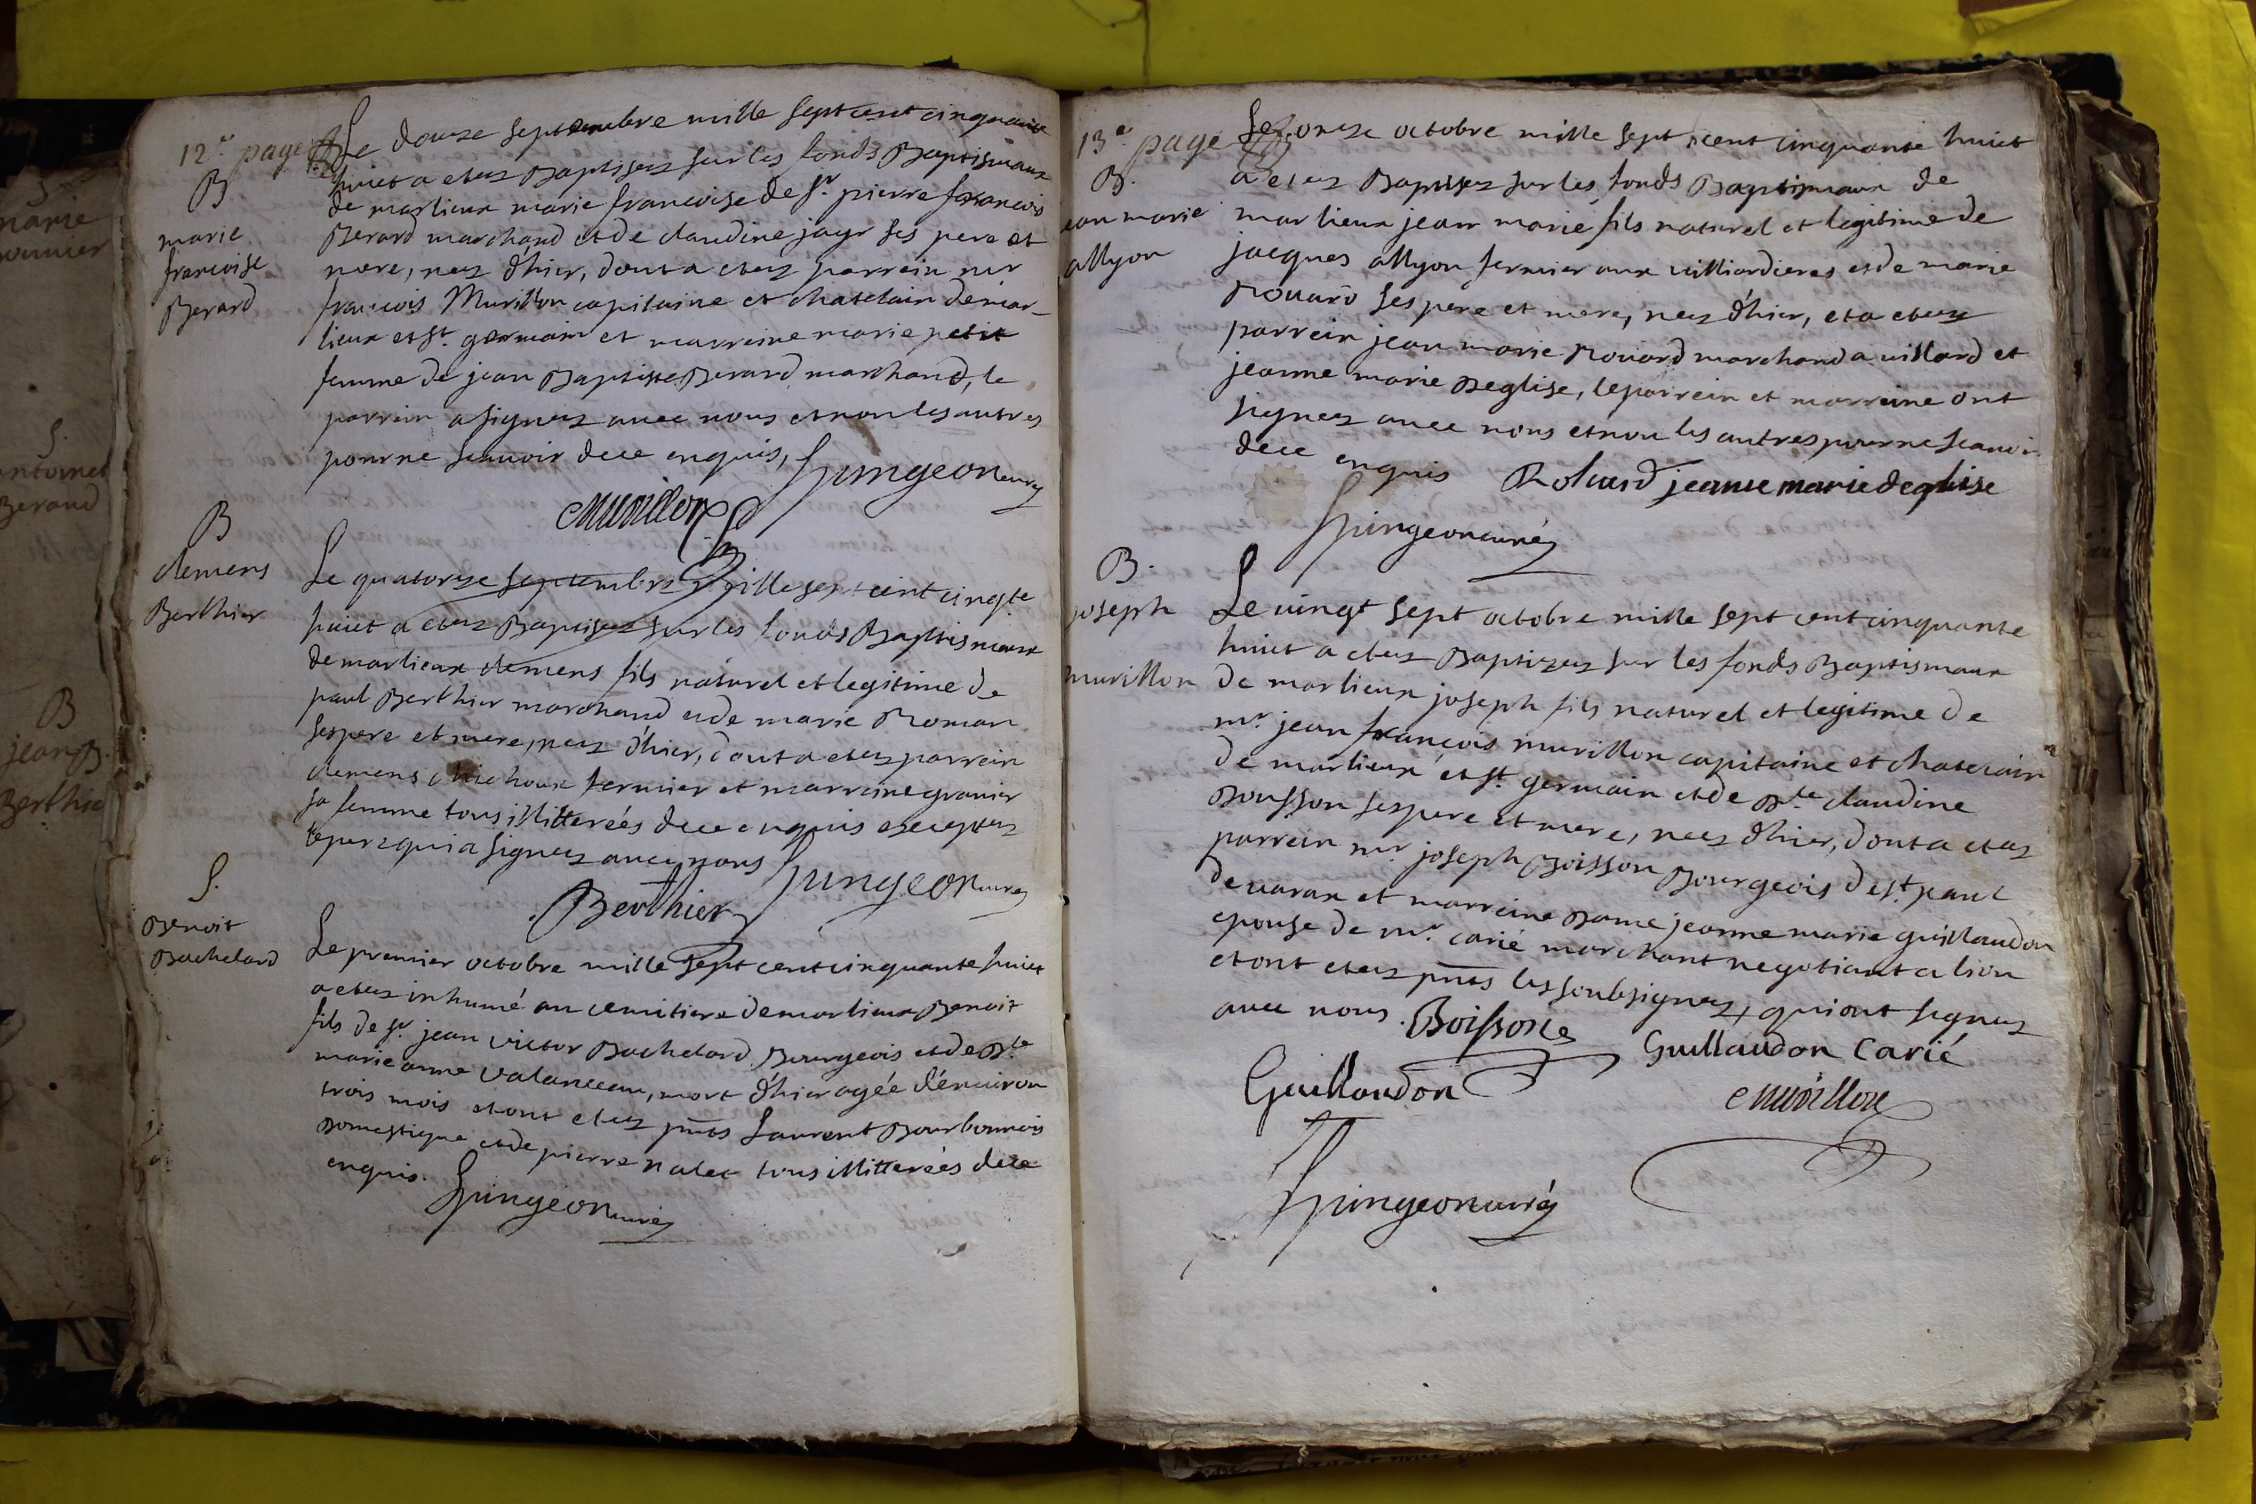 marie
S.
B
jean B.
12e page
B
marie
francoise
Berard
Le douze septembre mille sept cent cinquante
huict a etez Baptisez sur les fonds Baptismaux
de marlieux marie francoise de Sr. pierre francois
Berard marchand et de claudine jayr ses pere et
mere, nez d'hier, dont a etez parrein mr
francois Murillon capitaine et chatelain de mar_
lieux et St. germain et marreine marie petit
femme de jean Baptiste Berard marchand, le
parrein a signez avec nous et non les autres
pour ne scauoir de ce enquis, Spingeon curé
Murillon
B
clemens
Berthier
Le quatorze septembre mille sept cent cinqte
huict a etez Baptisez sur les fonds Baptismaux
de marlieux clemens fils naturel et legitime de
paul Berthier marchand et de marie Roman
ses pere et mere, nez d'hier, dont a etez parrein
clemens chichoux fermier et marreine granier
sa femme tous illitterés de ce enquis exceptez
le pere qui a signez avec nous Spingeon curé
Berthier
S.
Benoit
Bachelard
Le premier octobre mille sept cent cinquante huict
a etez inhumé au cemitiere de marlieux Benoit
fils de Sr. jean victor Bachelard Bourgeois et de Dlle
marie anne valanceau, mort d'hier agée d'enuiron
trois mois et ont etez pnts Laurent Bourbonnois
Domestique et de pierre nalet tous illitterées de ce
enquis. Spingeon curé
13e page
B.
jean marie
allyon
Le onze octobre mille sept cent cinquante huict
a etez Baptisez sur les fonds Baptismaux de
marlieux jean marie fils naturel et legitime de
jacques allyon fermier aux uilliardieres et de marie
Rouard ses pere et mere, nez d'hier, et a etez
parrein jean marie Rouard marchand a uillard et
jeanne marie Deglise, le parrein et marreine ont
signez avec nous et non les autres pour ne scauoir
de ce enquis Roluard jeanne marie deglise
Spingeon curé
B.
joseph
murillon
Le uingt sept octobre mille sept cent cinquante
huict a etez Baptizez sur les fonds Baptismaux
de marlieux joseph fils naturel et legitime de
mr. jean francois murillon capitaine et chatelain
de marlieux et St. germain et de Dlle claudine
Boisson ses pere et mere, nez d'hier, dont a etez
parrein mr. joseph Boisson Bourgeois de St. paul
de uarax et marreine Dame jeanne marie guillaudon
epouse de mr. carié marchant negotiant a lion
et ont etez pnts les soubsignez, qui ont signez
avec nous. Boisson
Guillaudon Carié
Guillaudon
Murillon
Spingeon curé